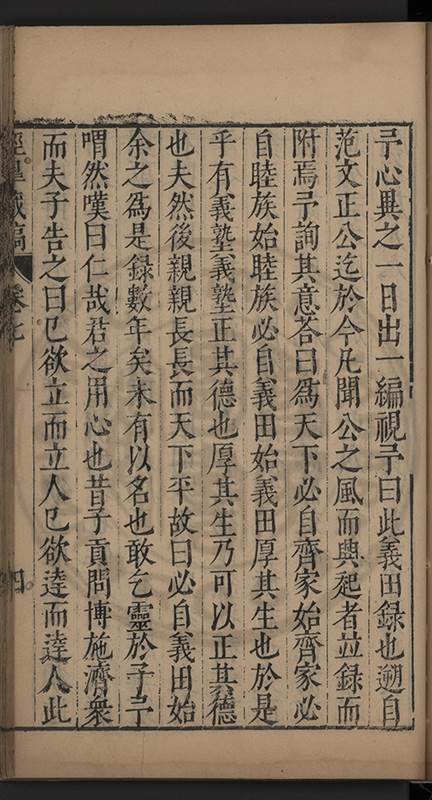 予心異之一日出一編視予曰此義田錄也遡自
范文正公迄於今凡聞公之風而興起者竝錄而
附焉予詢其意荅曰爲天下必自齊家始齊家必
自睦族始睦族必自義田始義田厚其生也於是
乎有義塾義塾正其德也厚其生乃可以正其德
也夫然後親親長長而天下平故曰必自義田始
余之爲是錄數年矣未有以名也敢乞靈於子予
喟然嘆曰仁哉君之用心也昔子貢問博施濟衆
而夫子告之曰已欲立而立人已欲逹而逹人此
涇臯藏稿 卷七 四